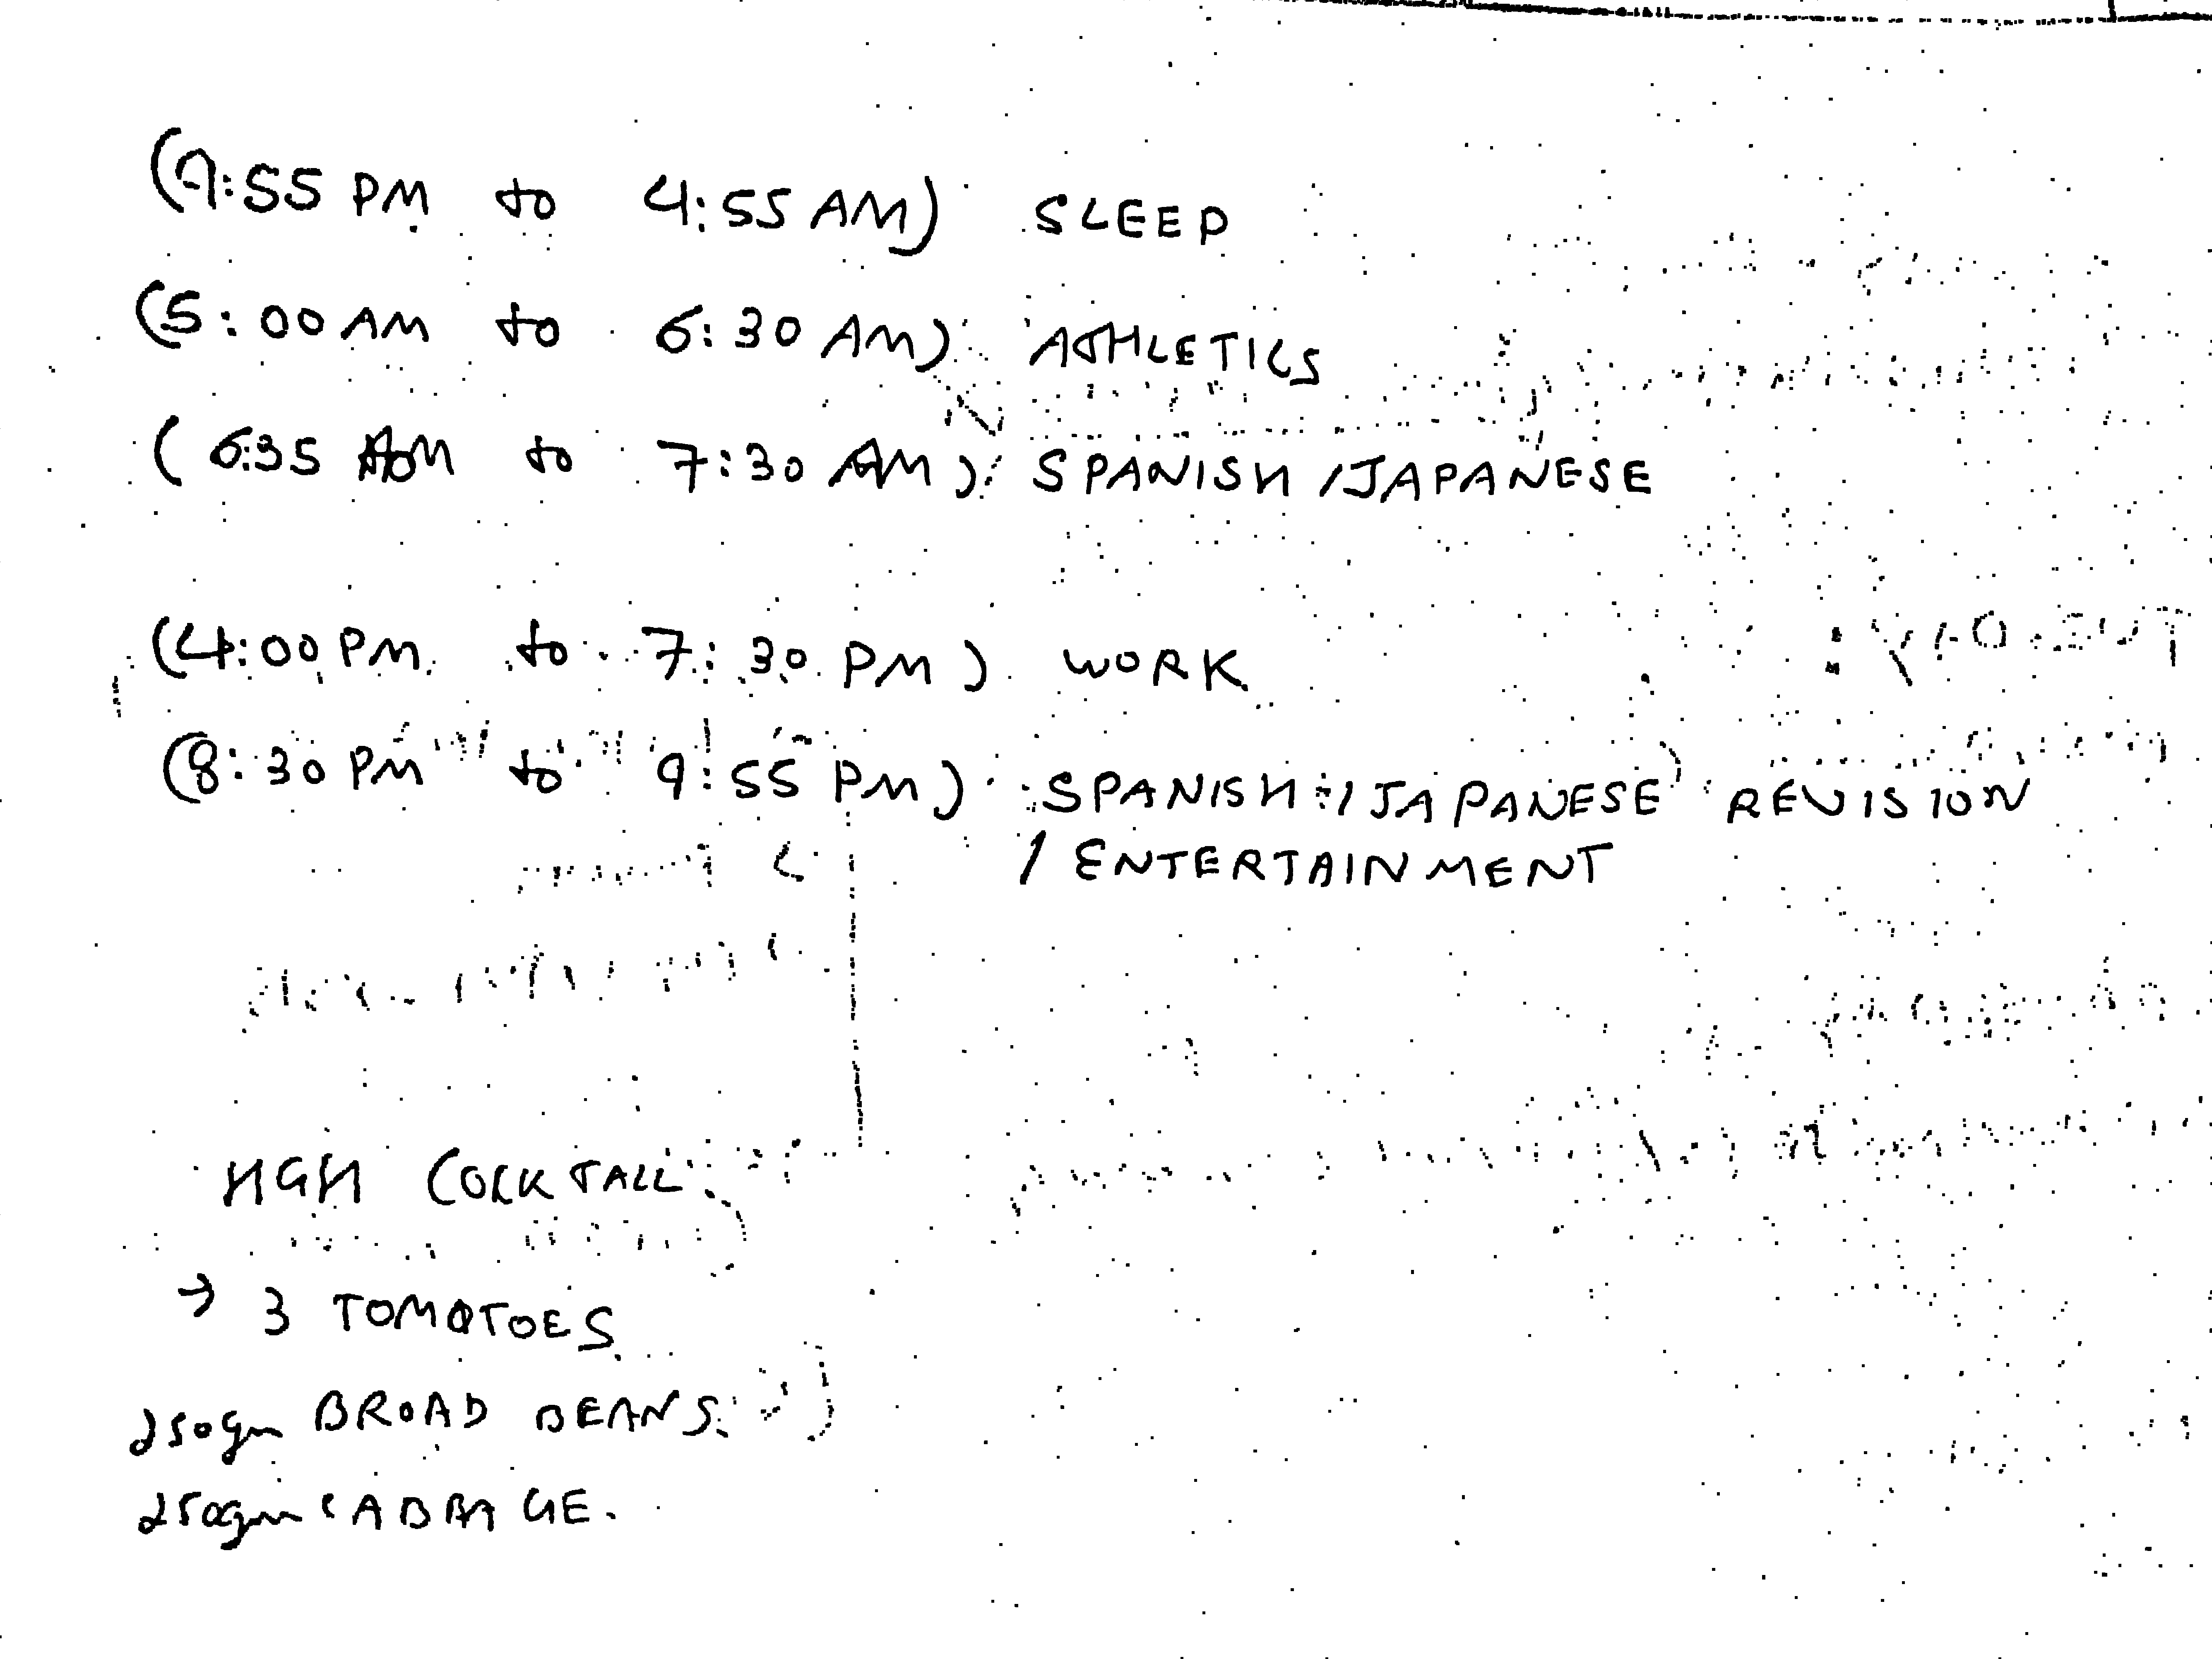 (9:55 PM to 4:55 AM) SLEEP
(5:00 AM to 6:30 AM) ATHLETICS
(6:35 AM to 7:30 AM) SPANISH /JAPANESE
(4:00 PM to 7:30 PM) WORK
(8:30 PM to 9:55 PM) SPANISH /JAPANESE REVISION
/ ENTERTAINMENT
HGH COCKTALL
→ 3 TOMATOES
250gm BROAD BEANS.
250gm CABBAGE.